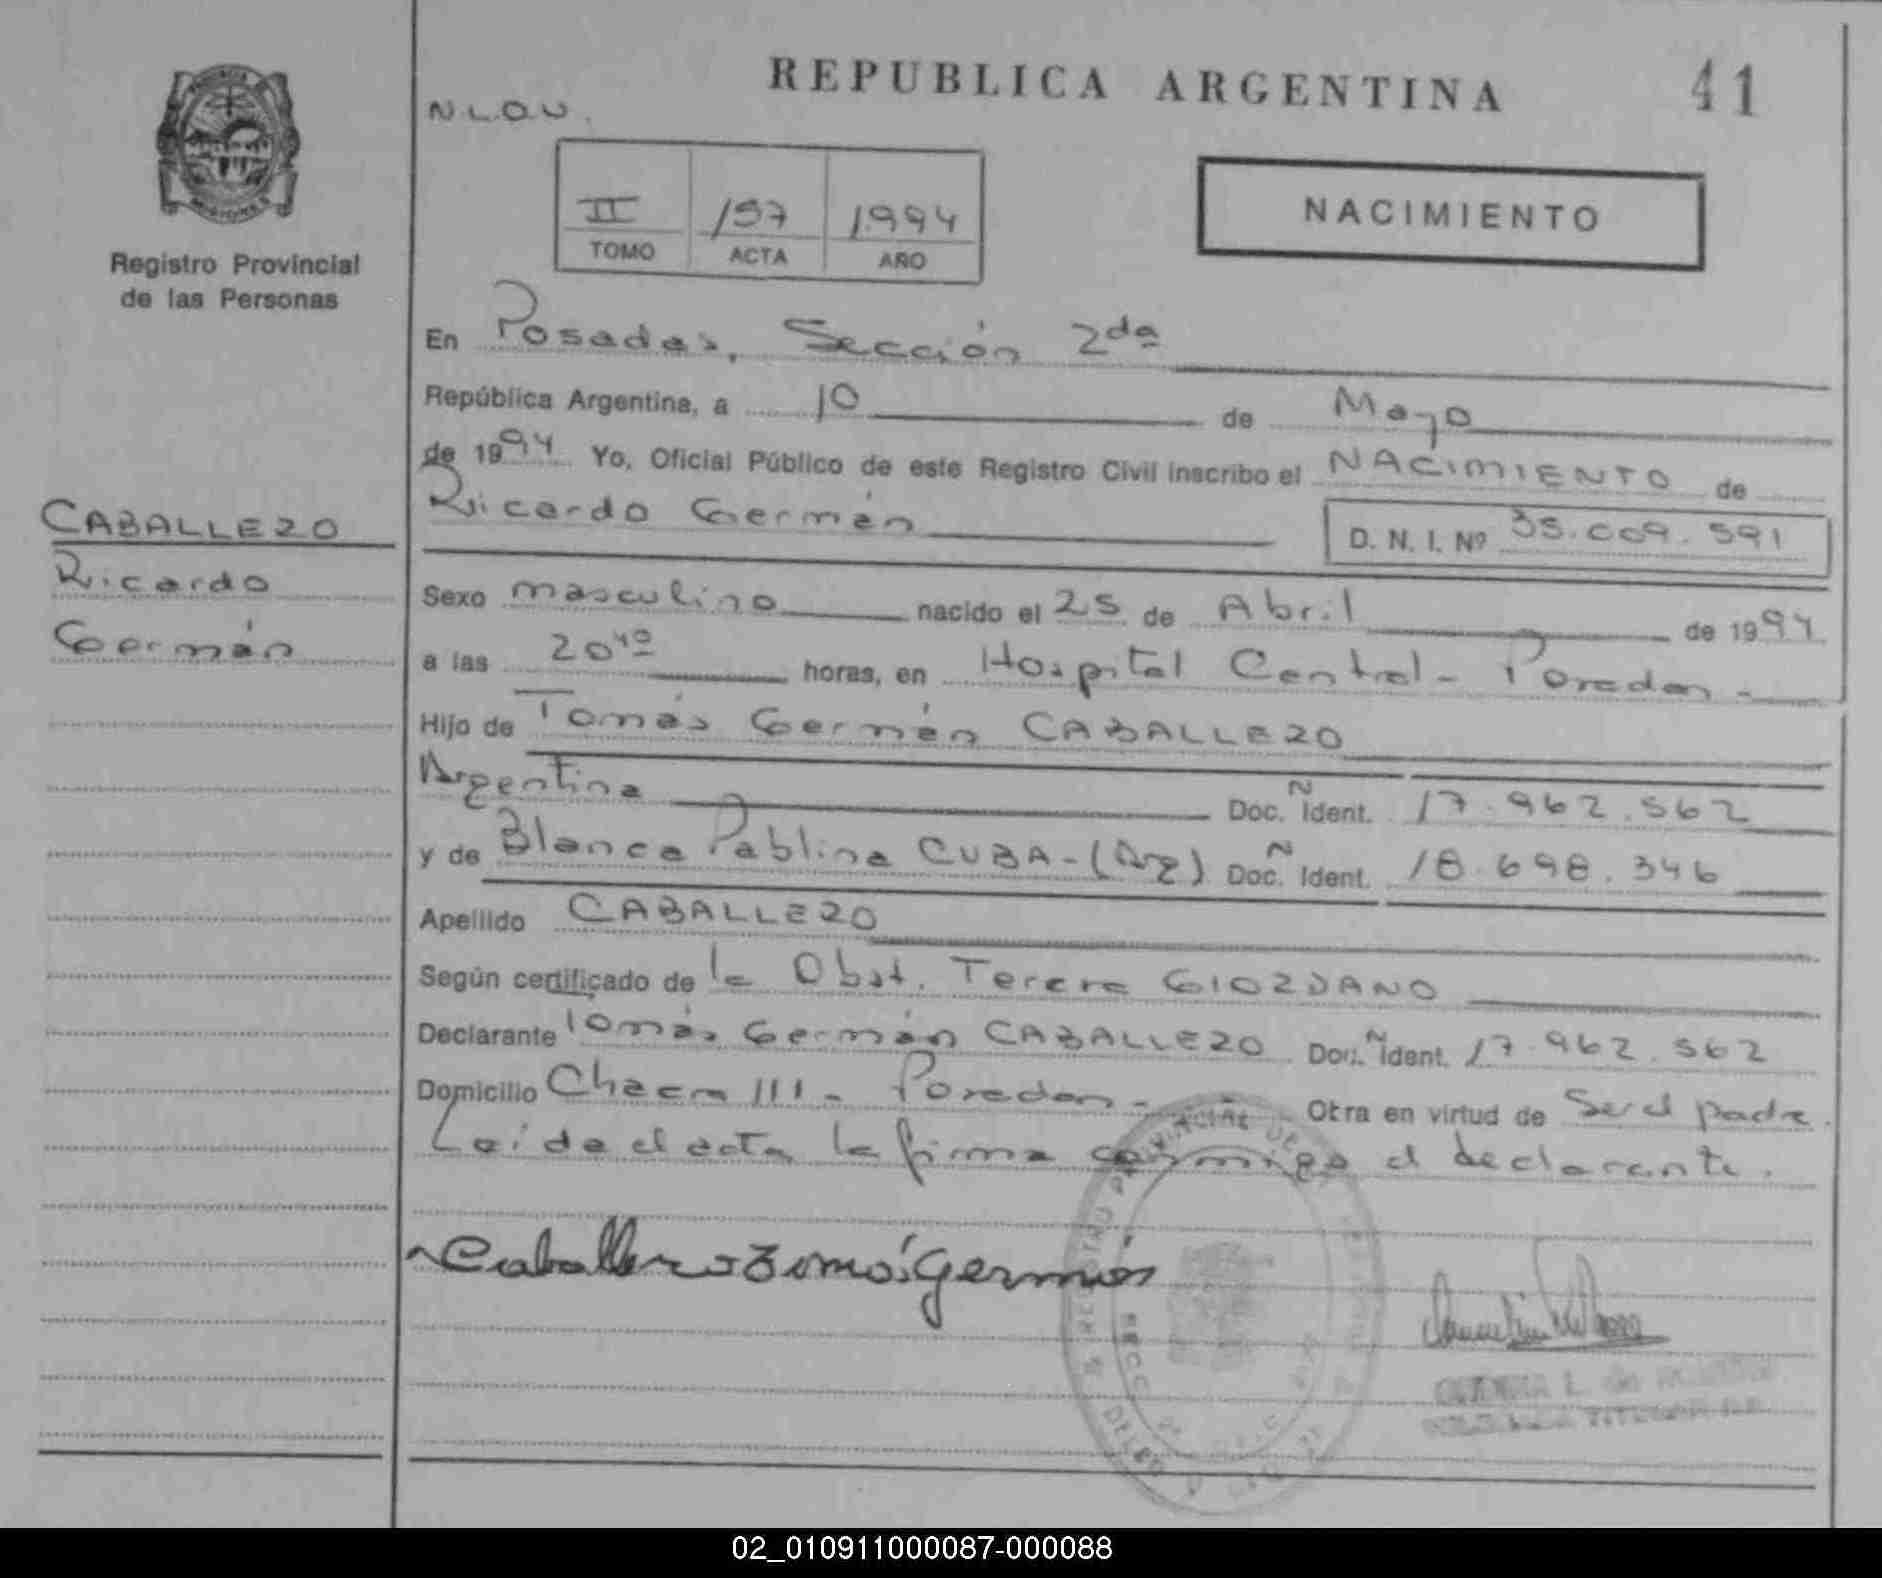 REPUBLICA ARGENTINA
41
N.L.O.U.
II 197 1.994
TOMO ACTA AÑO
NACIMIENTO
MISIONES
Registro Provincial
de las Personas
CABALLERO
Ricardo
Germán
En Posadas, Sección 2da
República Argentina, a 10 de Mayo
de 1994 Yo, Oficial Público de este Registro Civil inscribo el NACIMIENTO de
Ricardo Germán
D. N. I. Nº 35.009.591
Sexo masculino nacido el 25 de Abril de 1994
a las 20 40 horas, en Hospital Central - Posadas -
Hijo de Tomás Germán CABALLERO
Argentina Doc. Ñ Ident. 17.962.562
y de Blanca Pablina CUBA - (Arg) Doc. Ñ Ident. 18.698.346
Apellido CABALLERO
Según certificado de la Obst. Teresa GIORDANO
Declarante Tomás Germán CABALLERO Doc. Ñ Ident. 17.962.562
Domicilio Chacra 111 - Posadas - Obra en virtud de Ser el padre.
Leída el acta la firma conmigo el declarante.
Caballero Tomás Germán
02_010911000087-000088